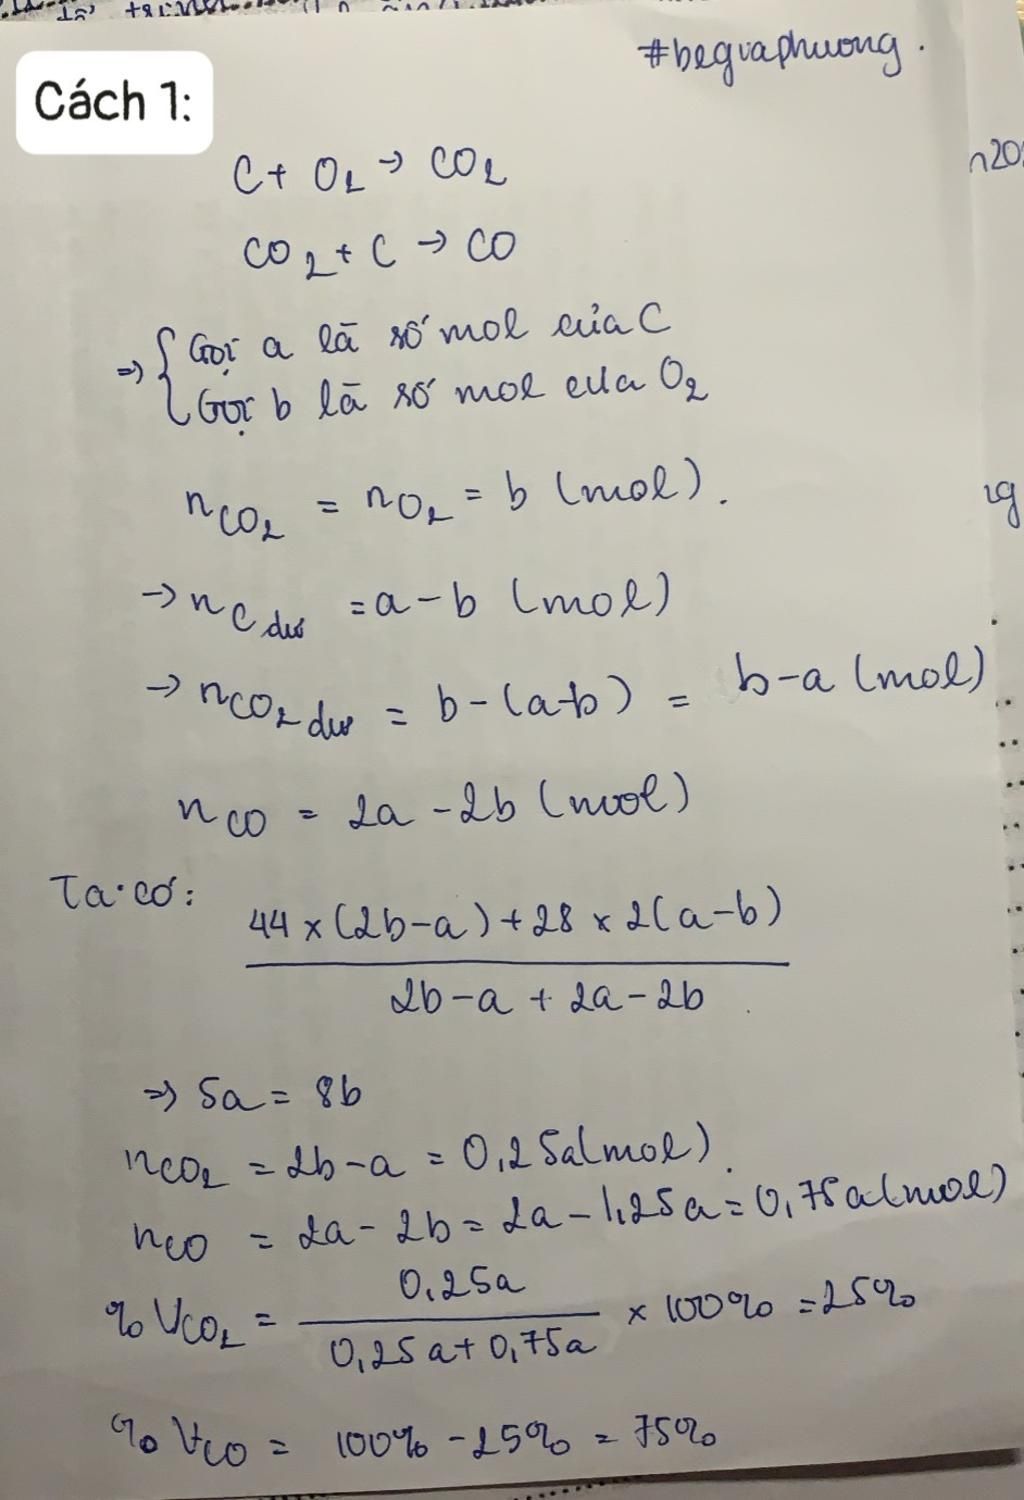 #begvaphuong.
Cách 1:
C + O₂ → CO₂
CO₂ + C → CO
⇒ { Gọi a là số mol của C
Gọi b là số mol của O₂
nCO₂ = nO₂ = b (mol).
→ nC dư = a - b (mol)
→ nCO₂ dư = b - (a-b) = b - a (mol)
nCO = 2a - 2b (mol)
Ta có:
44 × (2b - a) + 28 × 2(a - b)
2b - a + 2a - 2b
⇒ 5a = 8b
nCO₂ = 2b - a = 0,25a (mol).
nCO = 2a - 2b = 2a - 1,25a = 0,75a (mol)
%VCO₂ = 0,25a / 0,25a + 0,75a × 100% = 25%
%VCO = 100% - 25% = 75%